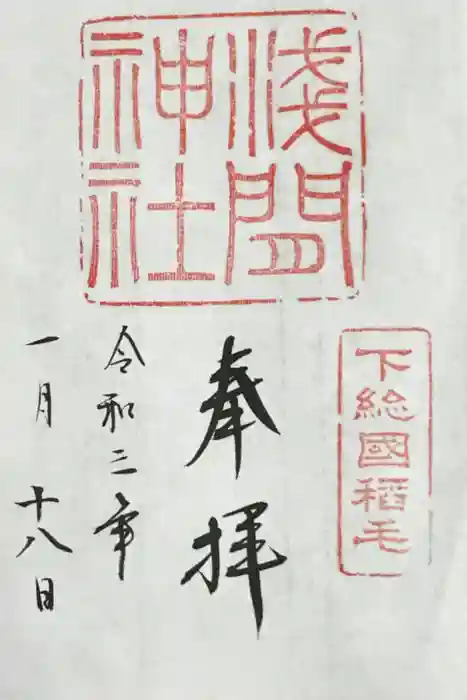 淺間
神社
下総國稻毛
奉拝
令和三年
一月十八日